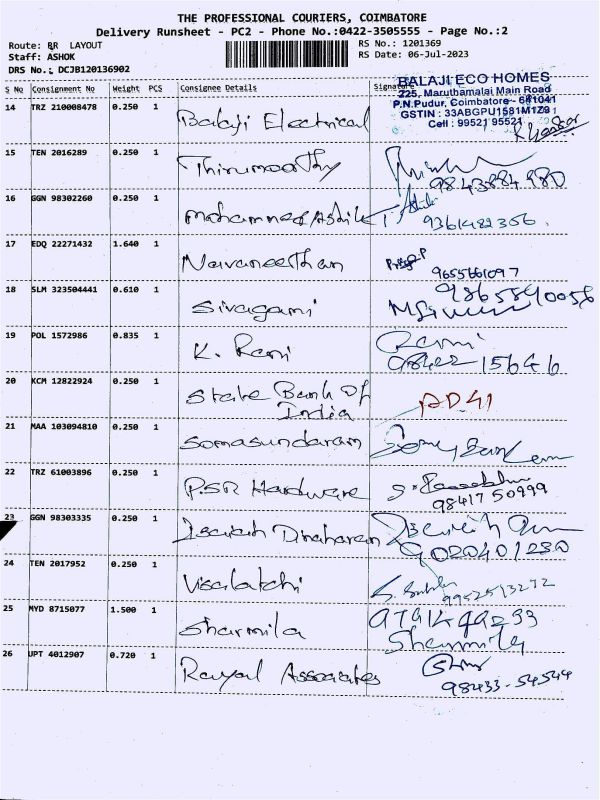 THE PROFESSIONAL COURIERS, COIMBATORE
Delivery Runsheet - PC2 - Phone No.:0422-3505555 - Page No.:2
Route: BR LAYOUT
RS No.: 1201369
Staff: ASHOK
RS Date: 06-Jul-2023
DRS No.: DCJB120136902
S No Consignment No Weight PCS Consignee Details Signature
BALAJI ECO HOMES
225, Maruthamalai Main Road
P.N.Pudur, Coimbatore - 641041
GSTIN : 33ABGPU1581M1Z9
Cell : 99521 95521
14 TRZ 210008478 0.250 1 Balaji Electrical
15 TEN 2016289 0.250 1 Thirumoorthy
9843884980
16 GGN 98302260 0.250 1 Mohammed Ashik
9361482356
17 EDQ 22271432 1.640 1 Navaneethan
9655661097
18 SLM 323504441 0.610 1 Sivagami
9865590056
19 POL 1572986 0.835 1 K. Rani Rani
98422 15646
20 KCM 12822924 0.250 1 State Bank Of
India
21 MAA 103094810 0.250 1 Somasundaram
22 TRZ 61003896 0.250 1 P.SR Hardware
98417 50999
23 GGN 98303335 0.250 1
9020401230
24 TEN 2017952 0.250 1 Visalatchi
9952513272
25 MYD 8715077 1.500 1 Sharmila
Sharmila
26 UPT 4012907 0.720 1 Rayal Associates
98433-54544